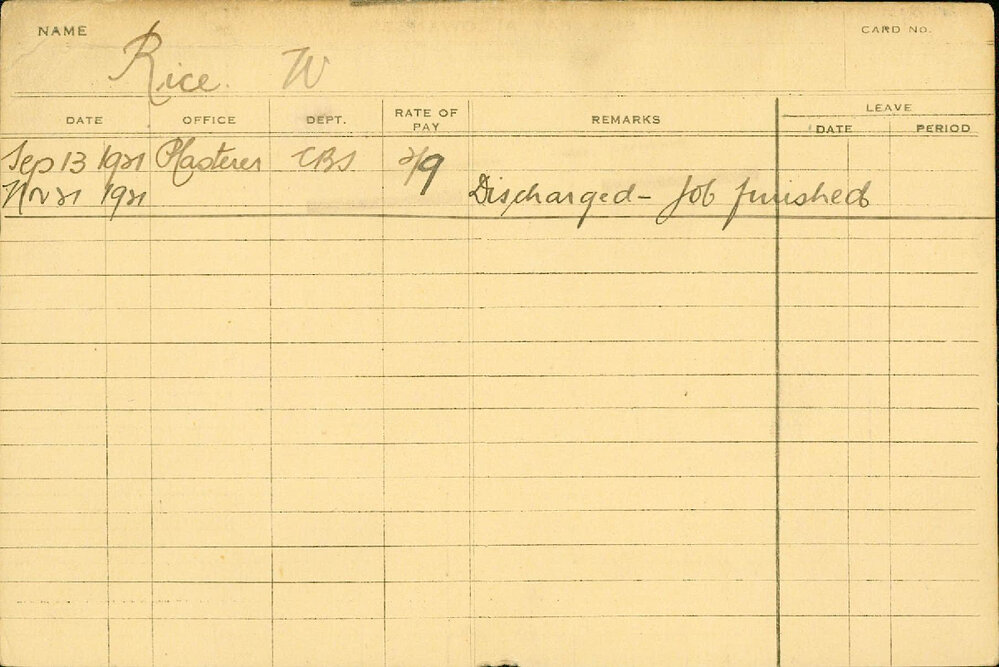 NAME Rice. W CARD No.
DATE OFFICE DEPT. RATE OF PAY REMARKS LEAVE
DATE PERIOD
Sep 13 1921 Plasterer CBS 2/9
Nov 21 1921 Discharged - Job finished